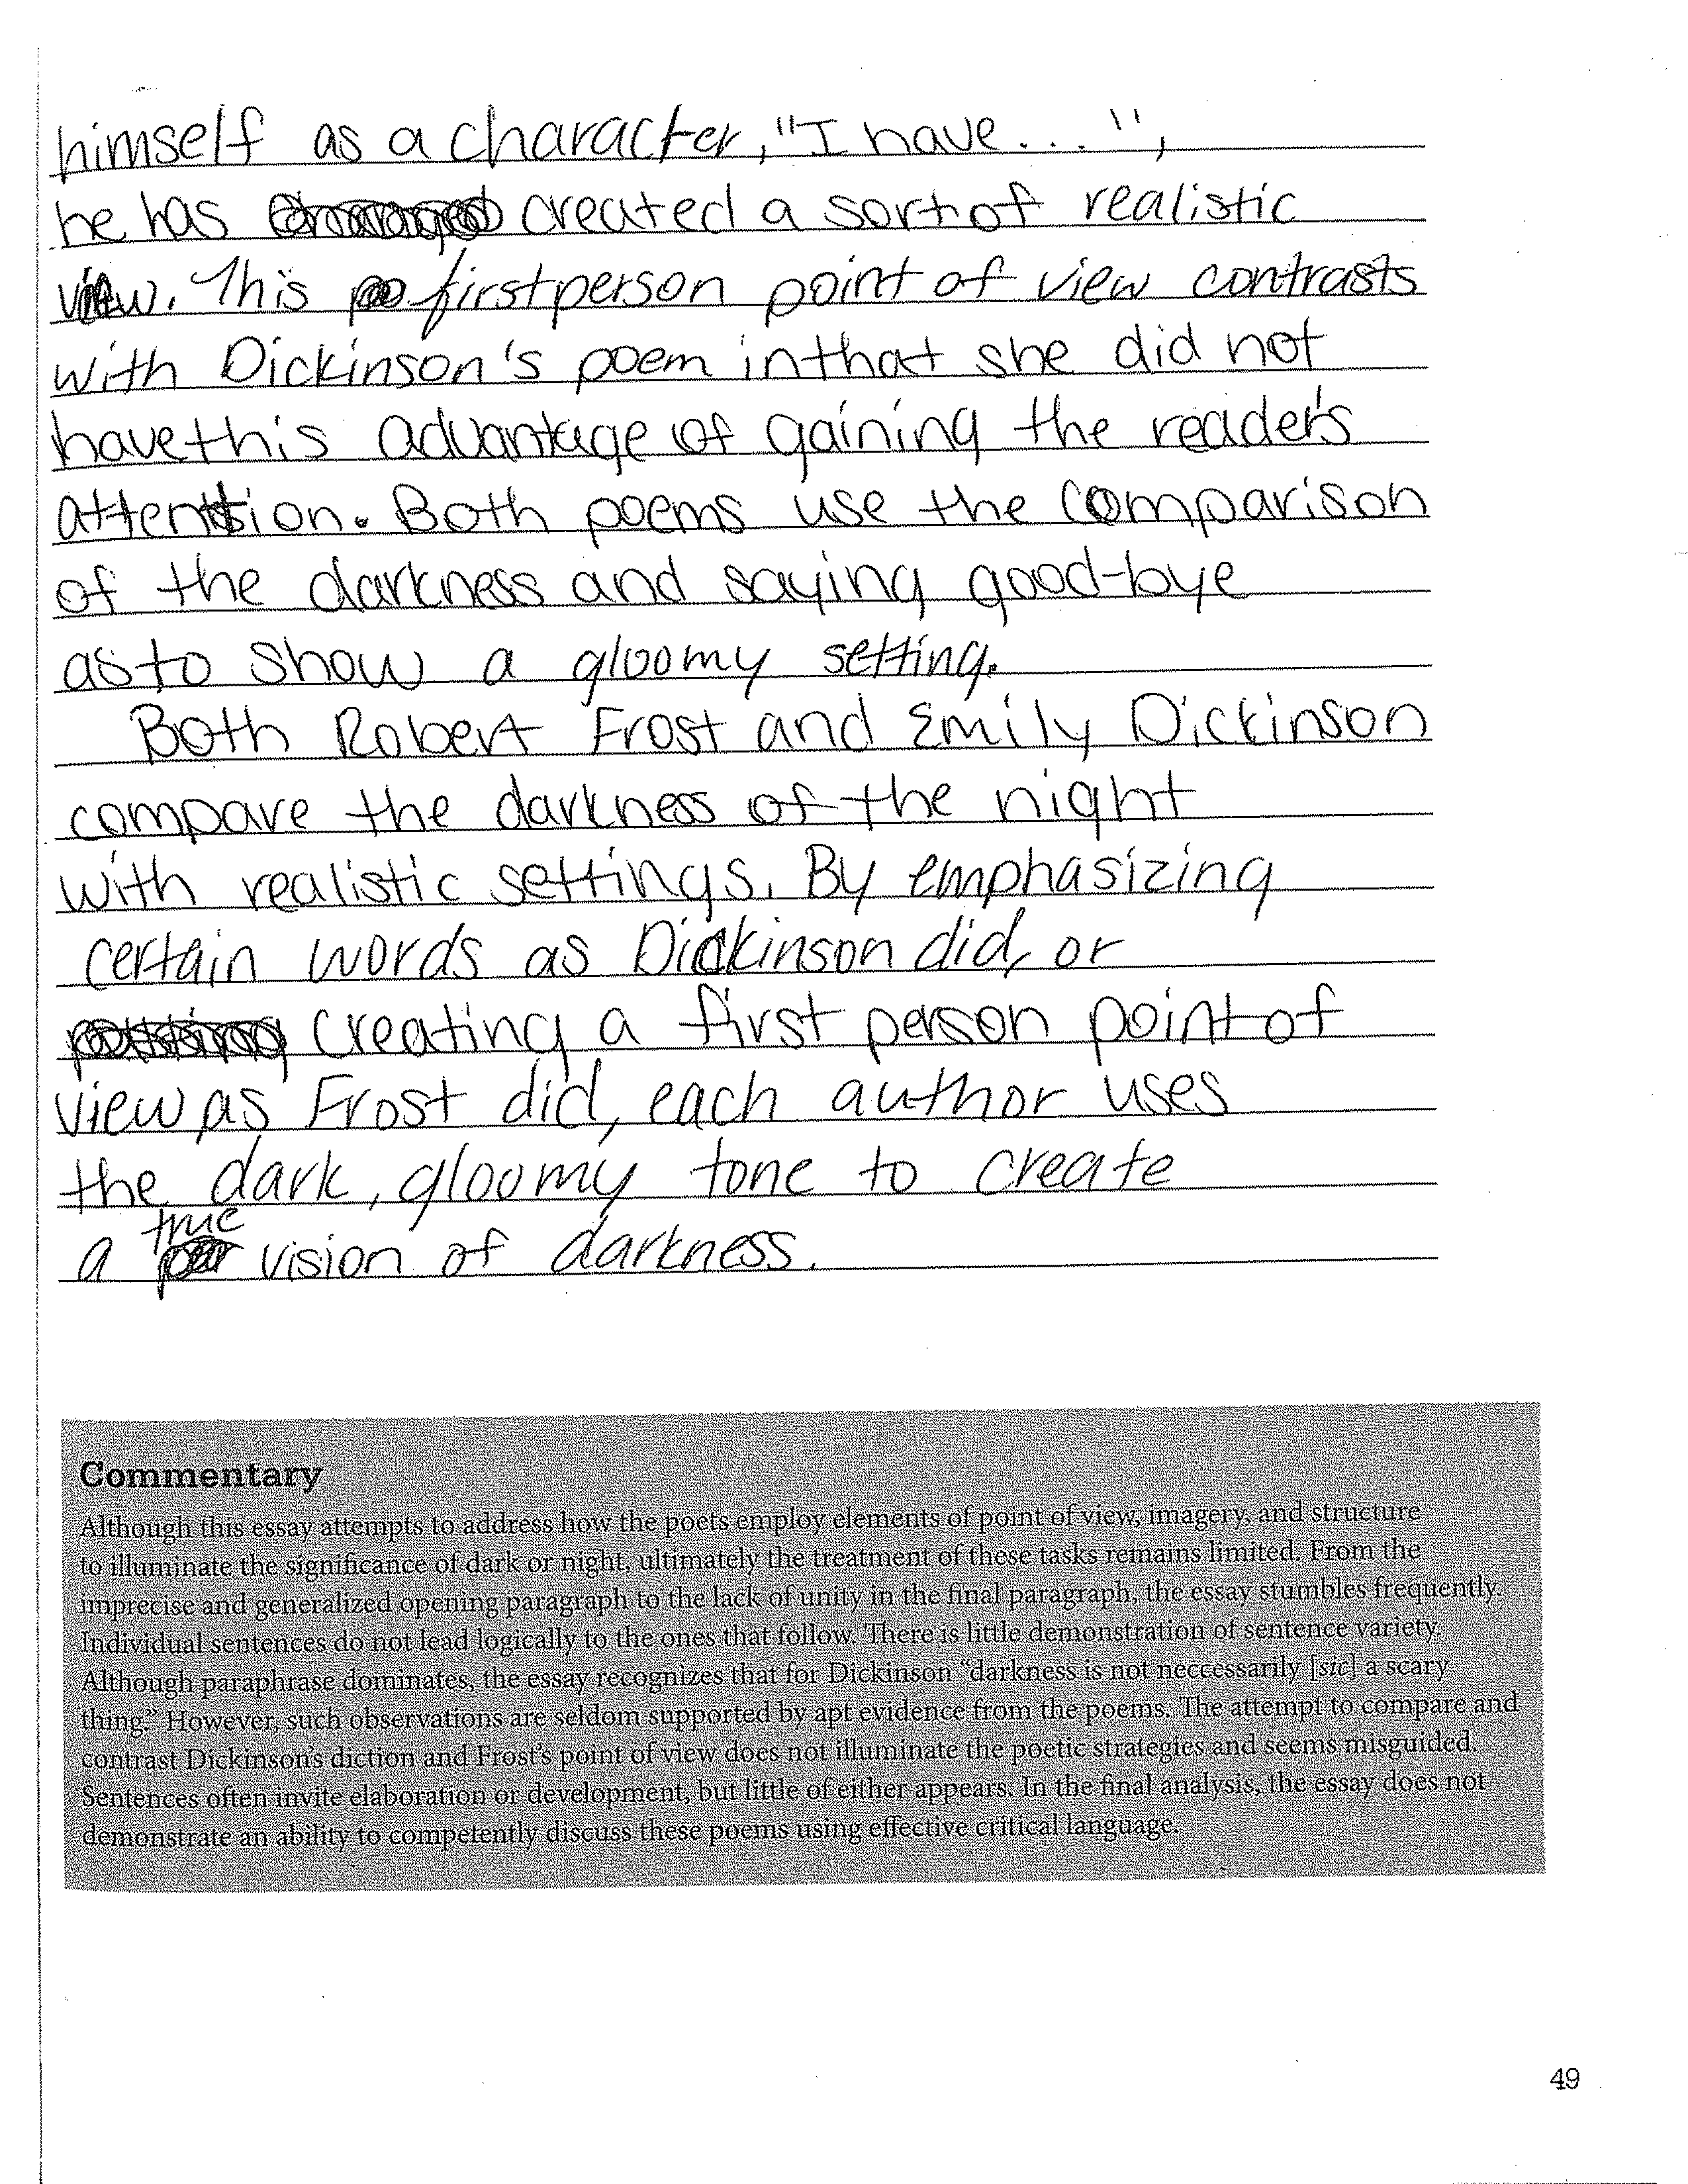 himself as a character, "I have...",
he has created a sort of realistic
view. This first person point of view contrasts
with Dickinson's poem in that she did not
have this advantage of gaining the reader's
attention. Both poems use the comparison
of the darkness and saying good-bye
as to show a gloomy setting.
Both Robert Frost and Emily Dickinson
compare the darkness of the night
with realistic settings. By emphasizing
certain words as Dickinson did, or
creating a first person point of
view as Frost did, each author uses
the dark, gloomy tone to create
true
a vision of darkness.
Commentary
Although this essay attempts to address how the poets employ elements of point of view, imagery, and structure
to illuminate the significance of dark or night, ultimately the treatment of these tasks remains limited. From the
imprecise and generalized opening paragraph to the lack of unity in the final paragraph, the essay stumbles frequently.
Individual sentences do not lead logically to the ones that follow. There is little demonstration of sentence variety.
Although paraphrase dominates, the essay recognizes that for Dickinson "darkness is not neccessarily [sic] a scary
thing." However, such observations are seldom supported by apt evidence from the poems. The attempt to compare and
contrast Dickinson's diction and Frost's point of view does not illuminate the poetic strategies and seems misguided.
Sentences often invite elaboration or development, but little of either appears. In the final analysis, the essay does not
demonstrate an ability to competently discuss these poems using effective critical language.
49